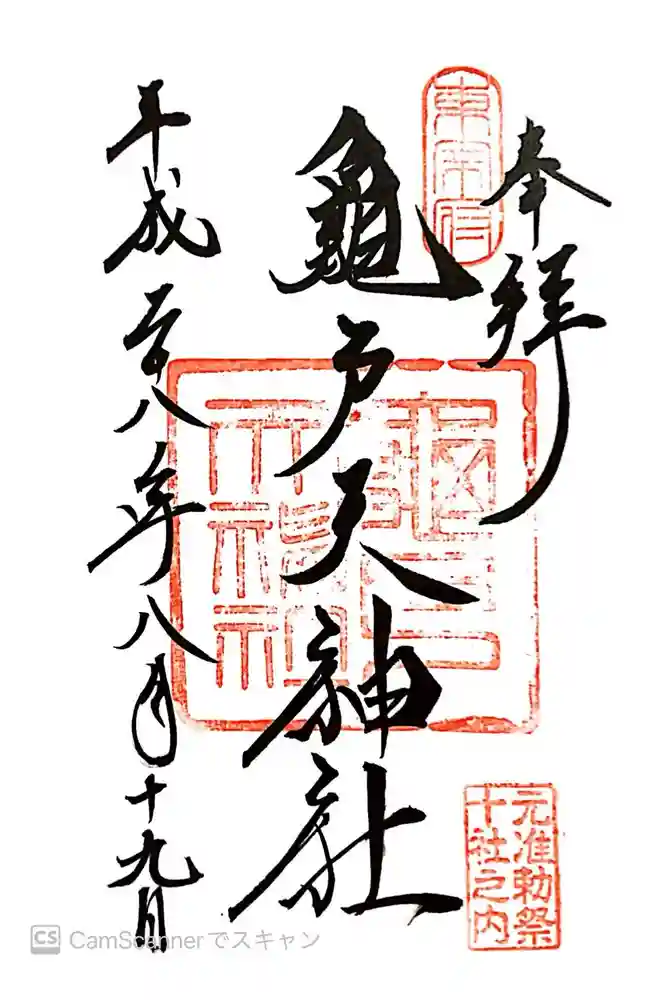 奉拝
東宰府
亀戸天神社
元准勅祭
十社之内
平成二十八年八月十九日
CS CamScannerでスキャン